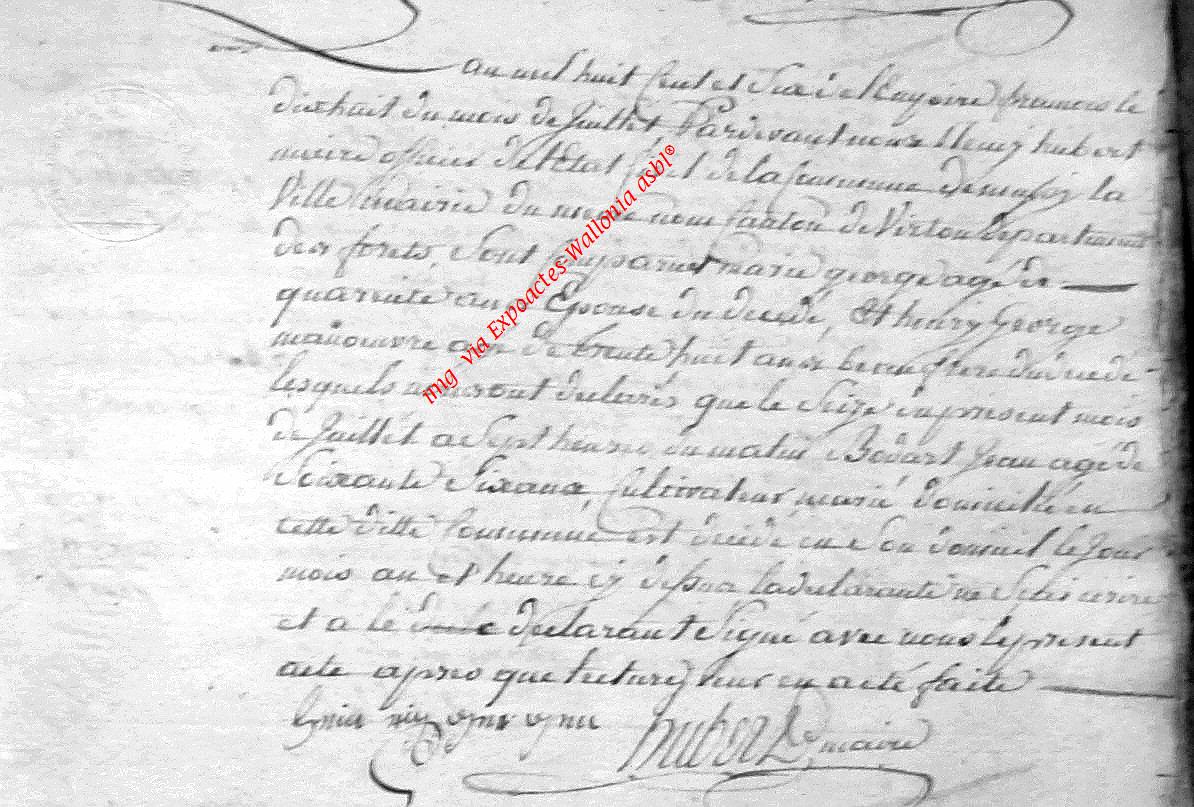 an mil huit Cent et Six de l'Empire francois le
dixhuit du mois de Juillet, Pardevant nous henry hubert
maire officier de l'Etat Civil de la Commune de mussy la
Ville mairie du meme nom Canton de Virton departement
des forets, Sont Comparus marie george agée de
quarante ans Epouse du decedé, Et henry George
manoeuvre agé de trente huit ans beau frere du decedé
lesquels nous ont declarés que le Seize du présent mois
de Juillet a Sept heures du matin Bodart Jean agé de
Soixante Six ans Cultivateur marié domicilié en
cette ditte Commune est decedé en Son domicil le Jour
mois an et heure cy dessus la declarante ne Scais ecrire
et a le declarant Signé avec nous le present
acte apres que lecture leur en a eté faite
hubert maire
img via Expoactes-Wallonia asbl®